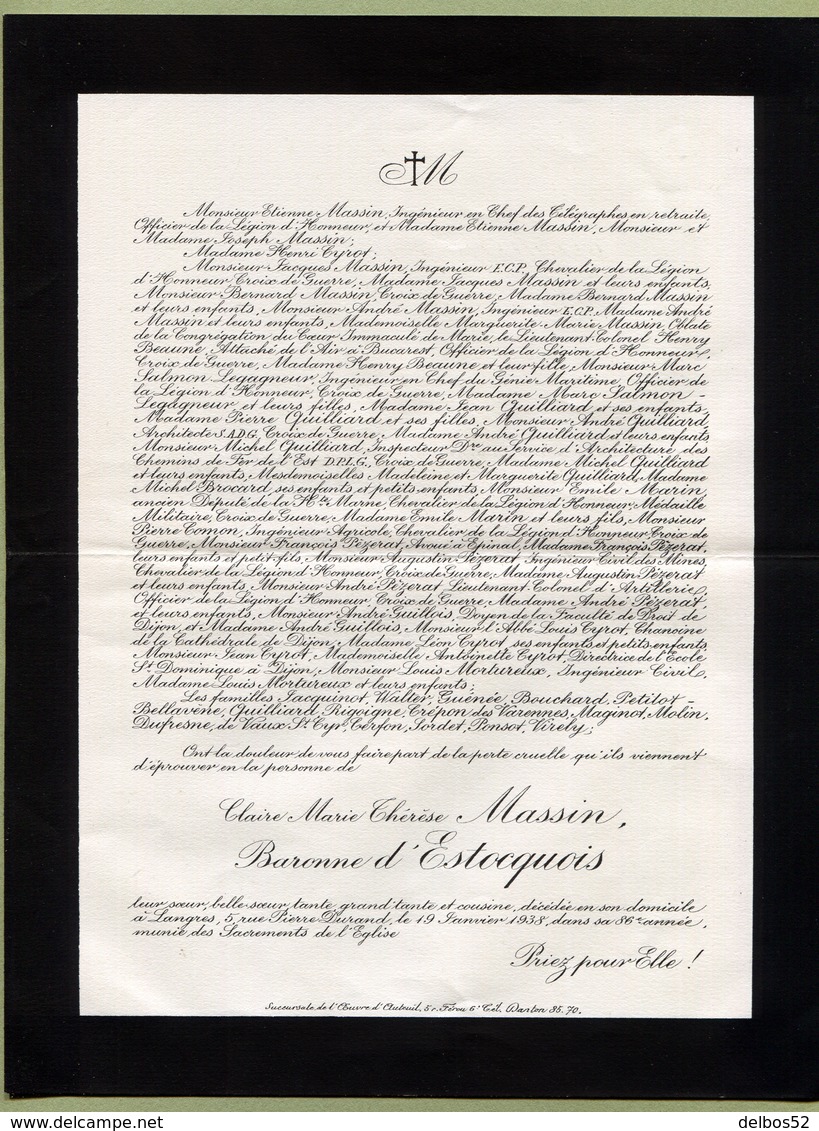 M
Monsieur Etienne Massin, Ingénieur en Chef des Télégraphes en retraite,
Officier de la Légion d'Honneur, et Madame Etienne Massin, Monsieur et
Madame Joseph Massin;
Madame Henri Cyrot;
Monsieur Jacques Massin, Ingénieur E.C.P. Chevalier de la Légion
d'Honneur, Croix de Guerre, Madame Jacques Massin et leurs enfants,
Monsieur Bernard Massin, Croix de Guerre, Madame Bernard Massin
et leurs enfants, Monsieur André Massin, Ingénieur E.C.P. Madame André
Massin et leurs enfants, Mademoiselle Marguerite-Marie Massin, Oblate
de la Congrégation du Cœur Immaculé de Marie, le Lieutenant-Colonel Henry
Beaune, Attaché de l'Air à Bucarest, Officier de la Légion d'Honneur,
Croix de Guerre, Madame Henry Beaune et leur fille, Monsieur Marc
Salmon Legagneur, Ingénieur en Chef du Génie Maritime, Officier de
la Légion d'Honneur, Croix de Guerre, Madame Marc Salmon-
Legagneur et leurs filles, Madame Jean Quilliard et ses enfants,
Madame Pierre Quilliard et ses filles, Monsieur André Quilliard,
Architecte S.A.D.G., Croix de Guerre, Madame André Quilliard et leurs enfants,
Monsieur Michel Quilliard, Inspecteur Dre au Service d'Architecture des
Chemins de Fer de l'Est D.P.L.G., Croix de Guerre, Madame Michel Quilliard
et leurs enfants, Mesdemoiselles Madeleine et Marguerite Quilliard, Madame
Michel Brocard, ses enfants et petits enfants, Monsieur Emile Marin
ancien Député de la Hte Marne, Chevalier de la Légion d'Honneur, Médaille
Militaire, Croix de Guerre, Madame Emile Marin et leurs fils, Monsieur
Pierre Comon, Ingénieur Agricole, Chevalier de la Légion d'Honneur, Croix de
Guerre, Monsieur François Pèzerat, Avoué à Epinal, Madame François Pèzerat,
leurs enfants et petit-fils, Monsieur Augustin Pèzerat, Ingénieur Civil des Mines,
Chevalier de la Légion d'Honneur, Croix de Guerre, Madame Augustin Pèzerat
et leurs enfants, Monsieur André Pèzerat, Lieutenant-Colonel d'Artillerie,
Officier de la Légion d'Honneur, Croix de Guerre, Madame André Pèzerat,
et leurs enfants, Monsieur André Guillois, Doyen de la Faculté de Droit de
Dijon, et Madame André Guillois, Monsieur l'Abbé Louis Cyrot, Chanoine
de la Cathédrale de Dijon, Madame Léon Cyrot, ses enfants et petits enfants,
Monsieur Jean Cyrot, Mademoiselle Antoinette Cyrot, Directrice de l'Ecole
St Dominique à Dijon, Monsieur Louis Mortureux, Ingénieur Civil,
Madame Louis Mortureux et leurs enfants;
Les familles Jacquinot, Walter, Guénée, Bouchard, Petitot-
Bellavène, Quilliard, Rigoigne, Crépon des Varennes, Maginot, Molin,
Dufresne, de Vaux St Cyr, Cerfon, Sordet, Ponsot, Virely;
Ont la douleur de vous faire part de la perte cruelle qu'ils viennent
d'éprouver en la personne de
Claire Marie Thérèse Massin,
Baronne d'Estocquois
leur sœur, belle-sœur, tante, grand'tante et cousine, décédée en son domicile
à Langres, 5, rue Pierre Durand, le 19 Janvier 1938, dans sa 86e année,
munie des Sacrements de l'Eglise
Priez pour Elle !
Succursale de l'Œuvre d'Auteuil, 5 r. Férou 6e Tél. Danton 85.70.
www.delcampe.net
delbos52